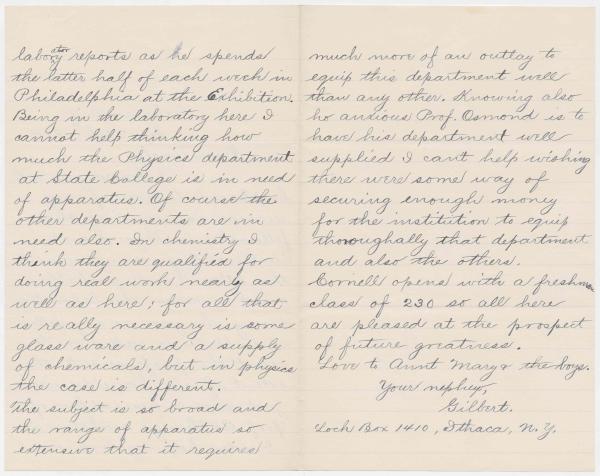 laboratory reports as he spends
the latter half of each week in
Philadelphia at the Exhibition.
Being in the laboratory here I
cannot help thinking how
much the Physics department
at State College is in need
of apparatus. Of course the
other departments are in
need also. In chemistry I
think they are qualified for
doing real work nearly as
well as here; for all that
is really necessary is some
glass ware and a supply
of chemicals, but in physics
the case is different.
The subject is so broad and
the range of apparatus so
extensive that it requires
much more of an outlay to
equip this department well
than any other. Knowing also
ho anxious Prof. Osmond is to
have his department well
supplied I cant help wishing
there were some way of
securing enough money
for the institution to equip
thoroughally that department
and also the others.
Cornell opens with a freshman
class of 230 so all here
are pleased at the prospect
of future greatness.
Love to Aunt Mary & the boys.
Your nephuy,
Gilbert.
Loch Box 1410, Ithaca, N.Y.